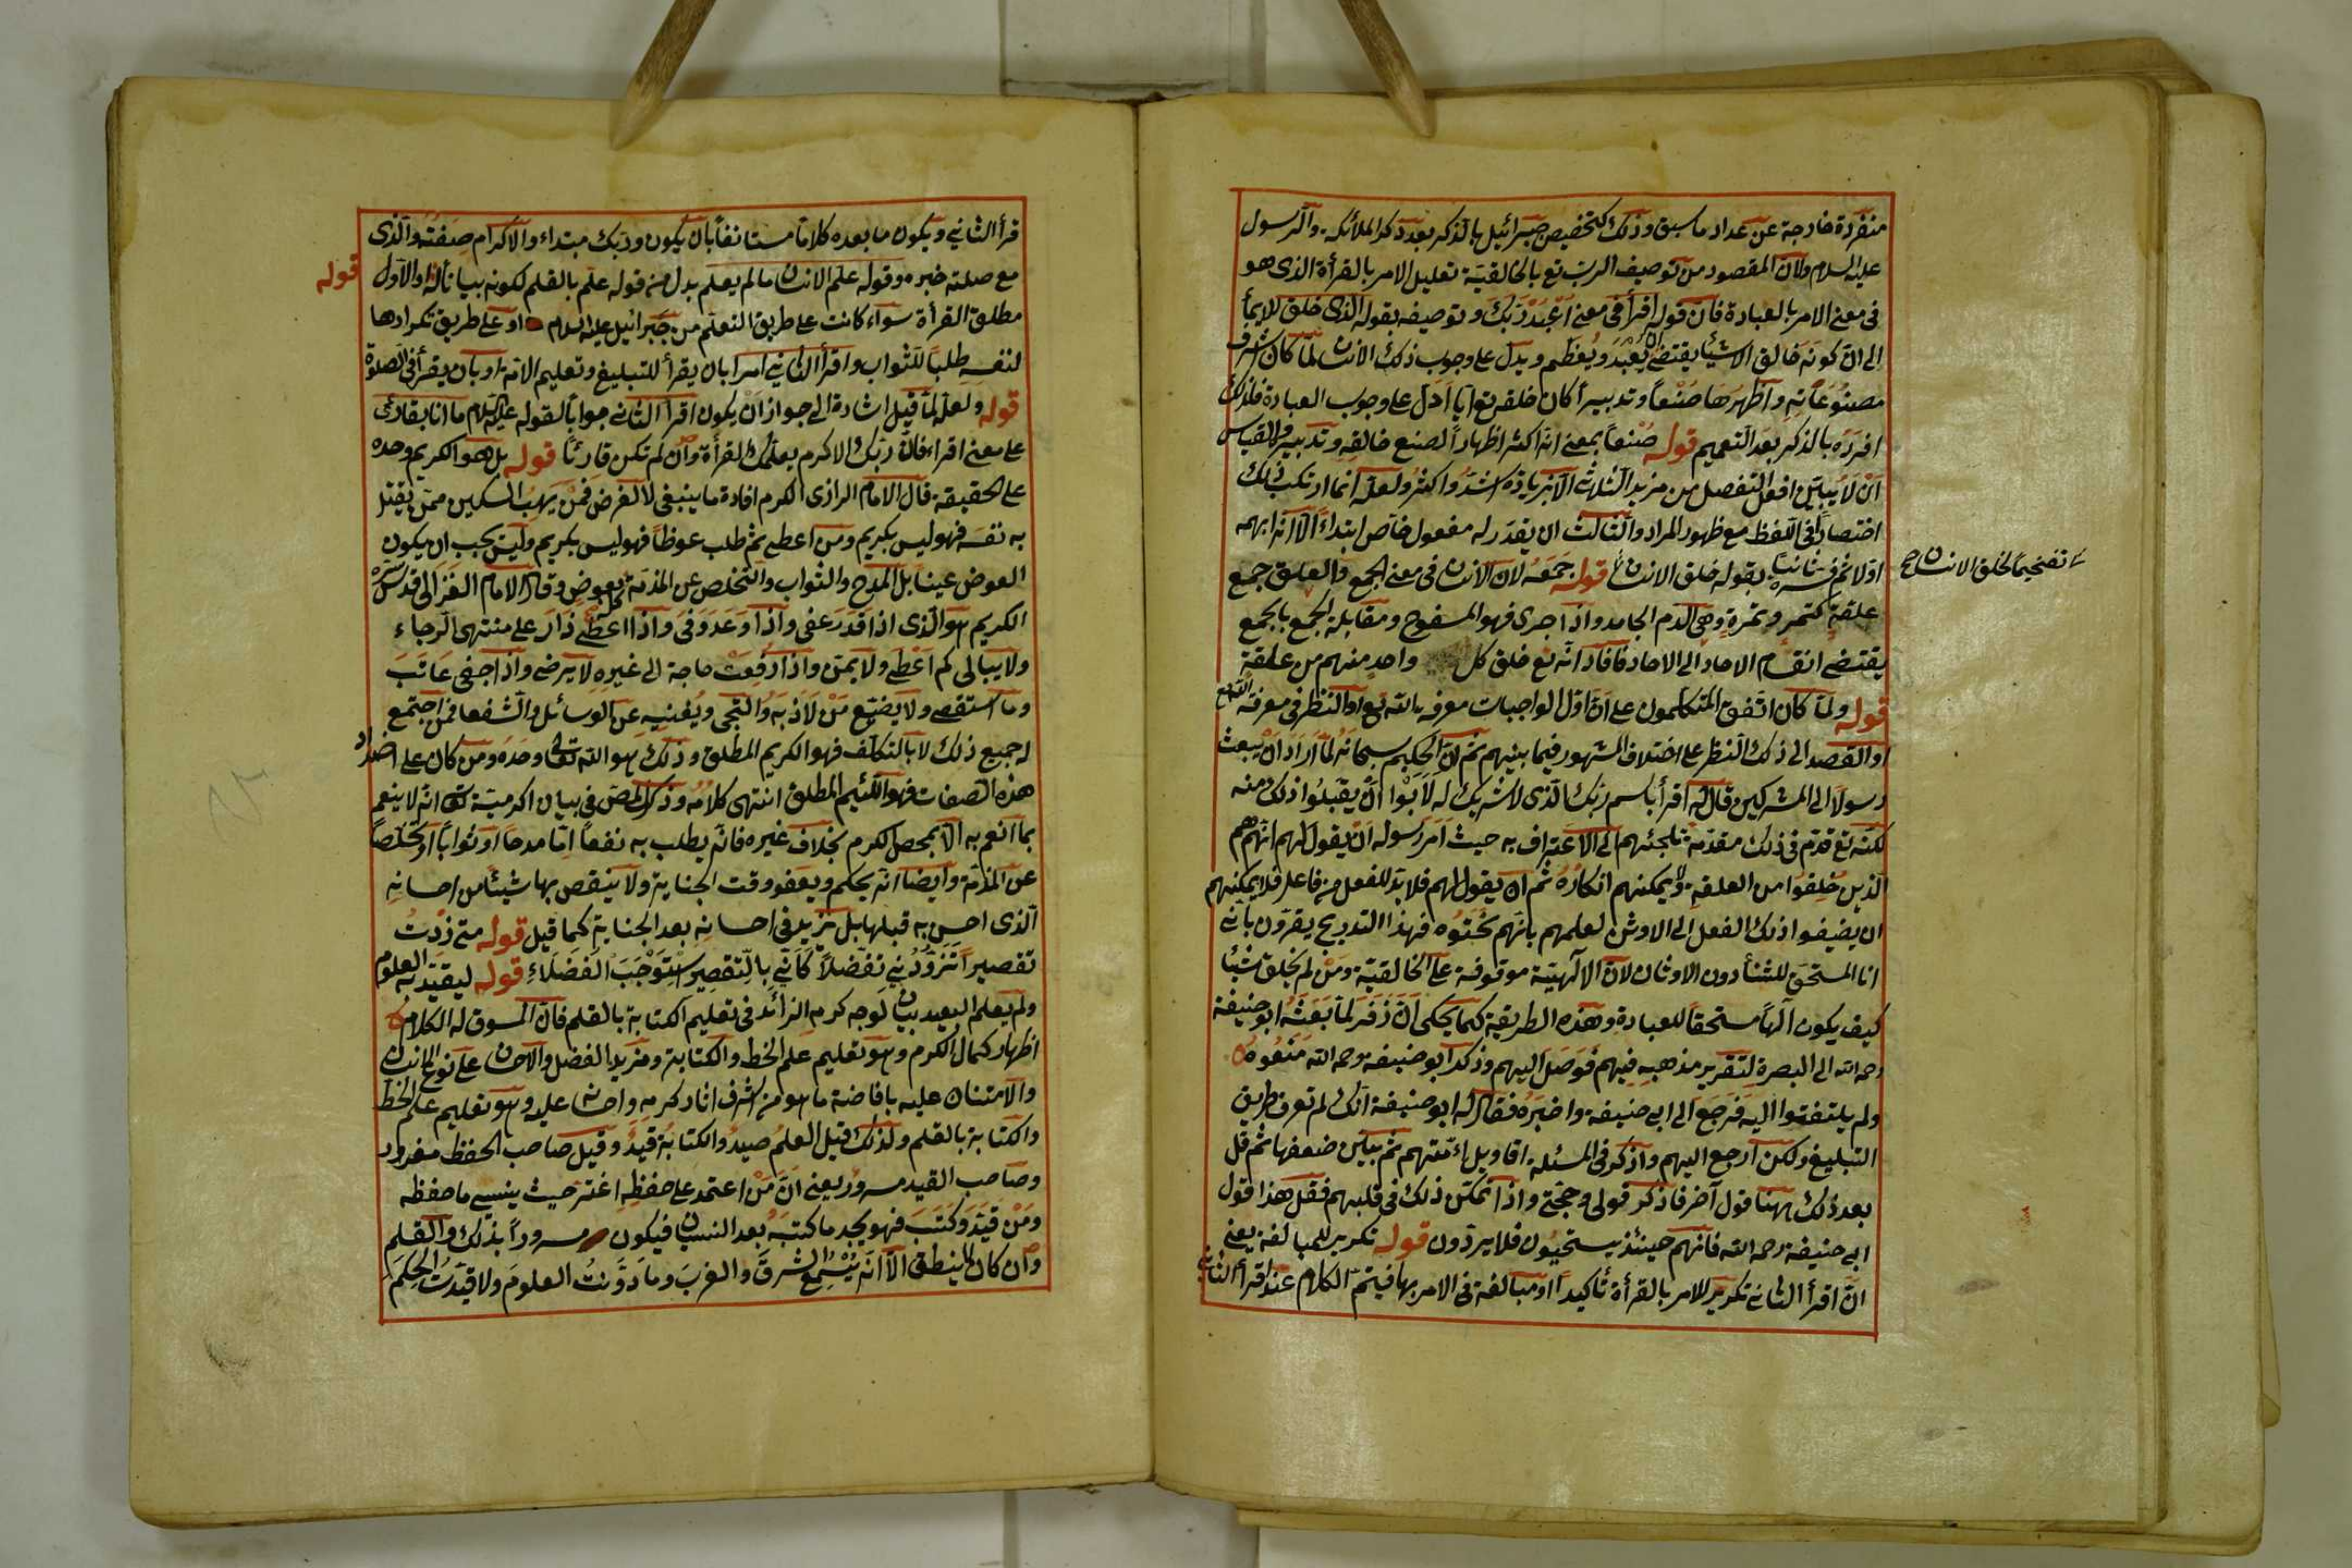 منفردة خارجة عن عداد ما سبق وذلك كتخصيص جبرائيل بالذكر بعد ذكر الملائكة والرسول
عليه السلام ولان المقصود من توصيف الرب تع بالخالقية تعليل الامر بالقرأة الذى هو
فى معنى الامر بالعبادة فان قوله اقرأ فى معنى اعبد ربك وتوصيفه بقوله الذى خلق للايمأ
الى ان كونه خالق الاشيأ يقتضى ان يعبد ويعظم ويدل على وجوب ذلك الانسان لما كان اشرف
مصنوعاته واظهرها صنعاً وتدبيرا كان خلقه تع اياه ادل على وجوب العبادة فلذلك
افرده بالذكر بعد التعميم قوله صنعاً بمعنى انه اكثر اظهاراً لصنع خالقه وتدبيره والقياس
ان لا يبنى افعل التفصل من مزيد الثلاثى الا بزيادة اشد واكثر ولعله انما ارتكب ذلك
اختصاراً فى اللفظ مع ظهور المراد والثالث ان يقدر له مفعول خاص ابتداءً الا انه ابهمه
اولا ثم فسره ثانيا بقوله خلق الانسان قوله جمعه لان الانسان فى معنى الجمع والعلق جمع
تفخيماً لخلق الانسان صح
علقة كتمر وتمرة وهى الدم الجامد واذا جرى فهو المسفوح ومقابلة الجمع بالجمع
يقتضى انقسام الاحاد الى الاحاد فافاد انه تع خلق كل واحد منهم من علقة
قوله ولما كان اتفق المتكلمون على ان اول الواجبات معرفه الله تع او النظر فى معرفة الله تع
او القصد الى ذلك النظر على اختلاف المشهور فيما بينهم ثم ان الحكيم سبحانه لما اراد ان يبعث
رسولا الى المشركين قال له اقرأ باسم ربك الذى لا شريك له لابوا ان يقبلوا ذلك منه
لكنه تع قدم فى ذلك مقدمة تلجئهم الى الاعتراف به حيث امر رسوله ان يقول لهم انهم هم
الذين خلقوا من العلقة ولا يمكنهم انكاره ثم ان يقول لهم فلا بد للفعل من فاعل فلا يمكنهم
ان يضيفوا ذلك الفعل الى الاوثن لعلمهم بانهم نحتوه فهذا التدريج يقرون بأنى
انا المستحق للثنأ دون الاوثان لان الالهية موقوفة على الخالقية ومن لم يخلق شيئا
كيف يكون الهاً مستحقاً للعبادة وهذه الطريقة كما يحكى ان زفر لما بعثه ابو حنيفة
رحمه الله الى البصرة لتقرير مذهبه فيهم فوصل اليهم وذكر ابو حنيفة رحمه الله منعوه
ولم يلتفتوا اليه فرجع الى ابى حنيفة واخبره فقال له ابو حنيفة انك لم تعرف طريق
التبليغ ولكن ارجع اليهم واذكر فى المسئلة اقاويل ائمتهم ثم بين ضعفها ثم قل
بعد ذلك ههنا قول آخر فاذكر قولى وحجتى واذا تمكن ذلك فى قلبهم فقل هذا قول
ابى حنيفة رحمه الله فانهم حينئذ يستحيون فلا يردون قوله تكرير للمبالغة يعنى
ان اقرأ الثانى تكرير للامر بالقرأة تأكيداً او مبالغة فى الامر بها فيتم الكلام عند اقرأ الثانى
قرأ الثانى ويكون ما بعده كلاما مستانفاً بان يكون وربك مبتداء والاكرام صفته والذى
مع صلته خبره وقوله علم الانسان مالم يعلم بدل من قوله علم بالقلم لكونه بيانا له والاول قوله
مطلق القرأة سواء كانت على طريق التعلم من جبرائيل عليه السلام او على طريق تكرارها
لنفسه طلباً للثواب واقرأ الثانى امرا بان يقرأ للتبليغ وتعليم الامة او بان يقرأ فى الصلوة
قوله ولعله لما قيل اشارة الى جواز ان يكون اقرأ الثانى جواباً لقوله عليه السلام ما انا بقارئ
على معنى اقراء فان ربك الاكرم يعلمك القرأة وان لم تكن قارئاً قوله بل هو الكريم وحده
على الحقيقة قال الامام الرازى الكرم افادة ما ينبغى لا لغرض فمن يهب السكين ممن يقتل
به نفسه فهو ليس بكريم ومن اعطى ثم طلب عوظاً فهو ليس بكريم وليس يجب ان يكون
العوض عينا بل المدح والثواب والتخلص عن المذمة كل بعوض وقال الامام الغزالى قدس سره
الكريم هو الذى اذا قدر عفى واذا وعد وفى واذا اعطى زاد على منتهى الرجاء
ولا يبالى كم اعطى ولا يمن واذا رفعت حاجة الى غيره لا يرضى واذا جفى عاتب
وما استقصى ولا يضيع من لاذ به والتجى ويغنيه عن الوسائل والشفعا فمن اجتمع
له جميع ذلك لا بالتكلف فهو الكريم المطلق وذلك هو الله تعالى وحده ومن كان على اضداد
هذه الصفات فهو اللئيم المطلق انتهى كلامه وذكر المص فى بيان اكرمية تعالى انه لا ينعم
بما انعم به الا بمحصل الكرم بخلاف غيره فانه يطلب به نفعاً اما مدحا او ثواباً او تخلصاً
عن المذمة وايضا انه يحلم ويعفو وقت الجناية ولا ينقص بها شيئا من احسانه
الذى احسن به قبلها بل يزيد فى احسانه بعد الجناية كما قيل قوله متى زدت
تقصيراً تزودنى تفضلاً كأنى بالتقصير استوجب الفضلاء قوله ليقيد به العلوم
ولم يعلم البعيد بيان لوجه كرمه الزائد فى تعليم الكتابة بالقلم فان المسوق له الكلام
اظهار كمال الكرم وهو تعليم علم الخط والكتابة ومزيد الفضل والاحسان على نوع الانسان
والامتنان عليه بافاضة ما هو من اشرف اثار كرمه واحسانه عليه وهو تعليم علم الخط
والكتابة بالقلم ولذلك قيل العلم صيد والكتابة قيد وقيل صاحب الحفظ مغرور
وصاحب القيد مسرور يعنى ان من اعتمد على حفظه اغتر حيث ينسى ما حفظه
ومن قيد وكتب فهو يجد ما كتبه بعد النسيان فيكون مسروراً بذلك والقلم
وان كان لا ينطق الا انه يسمع الشرق والغرب وما دونت العلوم ولا قيدت الحكم